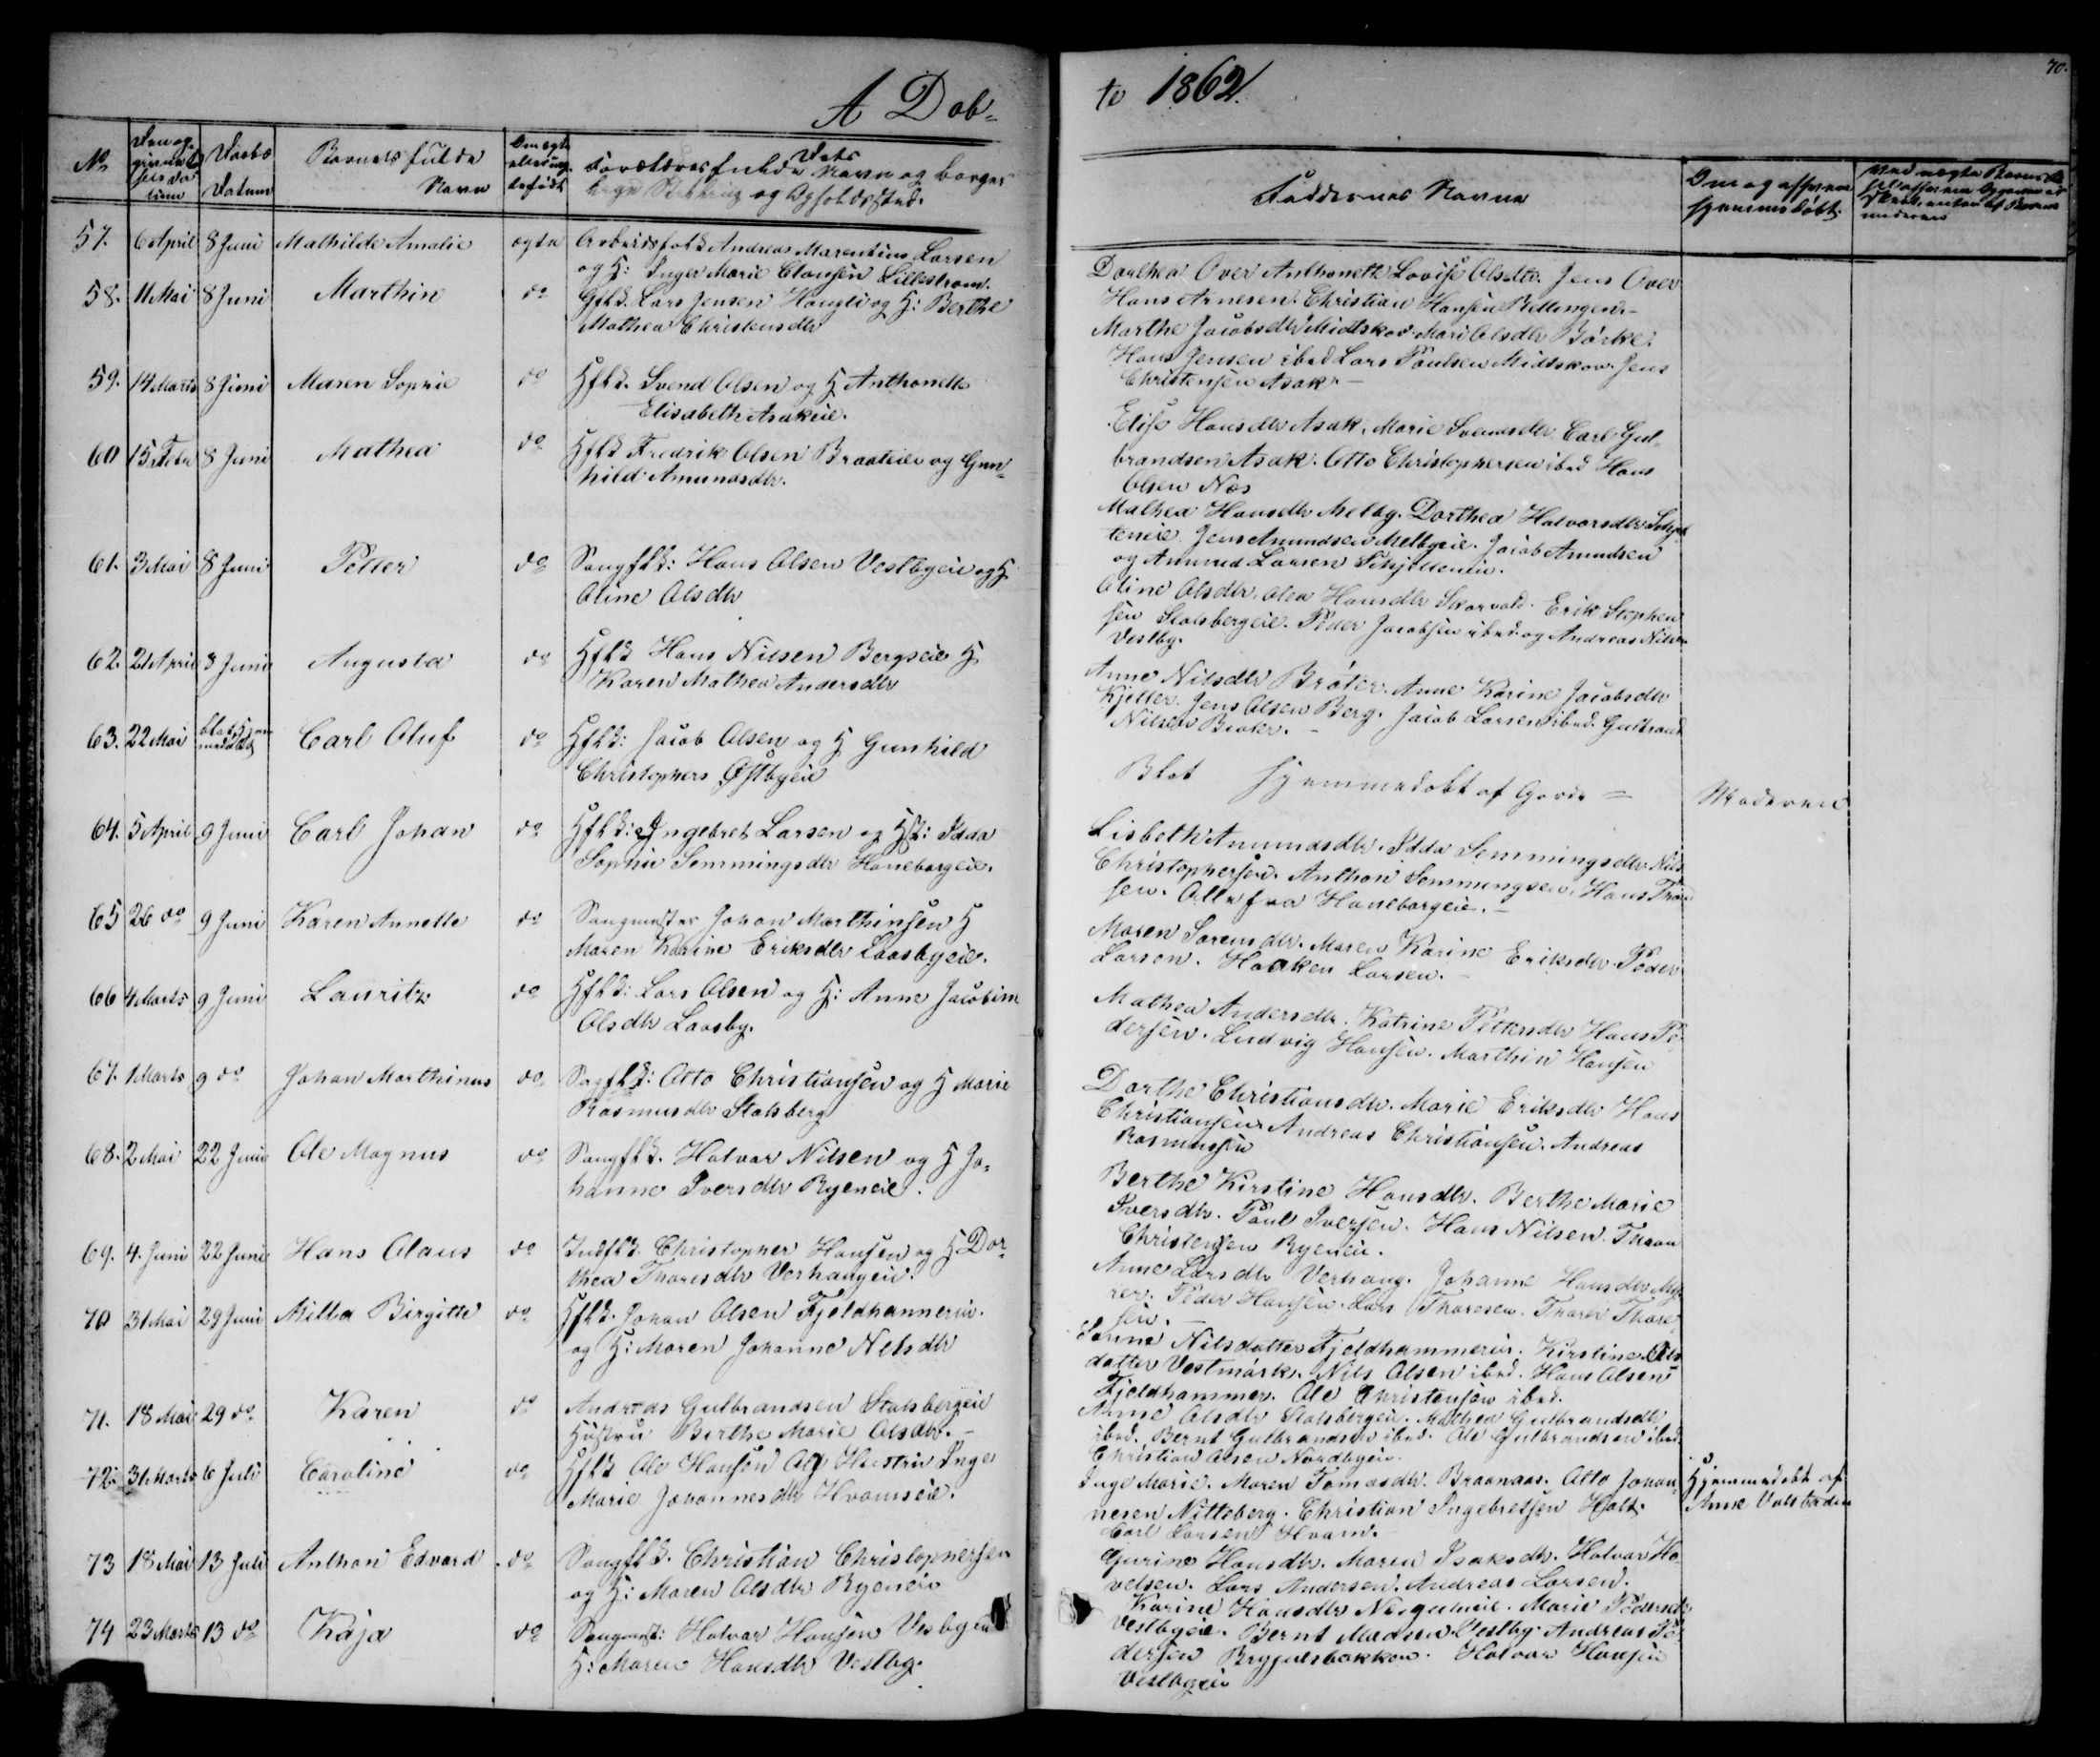 A Døb-
te 1862.
70.
No
Daabs
Datum
Barnets fulde
Navn
Forældres fulde Navn og borger
og Opholdssted.
Faddernes Navne
Om og af hvem
hjemmedøbt.
57. 6 April 8 Juni Mathilde Amalie ægte Arbeidsfolk Andreas Marentius Larsen
og H: Inger Marie Clausen Lillestrøm.
Dorthea Over Anthonette Lovise Olsdtr. Jens Over
Hans Arnesen. Christian Hansen Rellingen.-
58. 11 Mai 8 Juni Marthin do Gfk. Lars Jensen Haugli og H: Berthe
Mathea Christensdtr
Marthe Jacobsdtr Midtskov. Mari Olsdtr Børke.
Hans Jensen ibed Lars Paulsen Midtskov. Jens
Christensen Asak.-
59. 14 Marts 8 Juni Maren Sophie do Hfk. Svend Olsen og H Anthonette
Elisabeth Asakeie.
Elise Hansdtr Asak. Marie Svensdtr Carl Gul-
brandsen Asak. Otto Christophersen ibed Hans
Olsen Næs
60 15 Febr 8 Juni Mathea do Hfk Fredrik Olsen Braateie og Gun-
hild Amundsdtr.
Mathea Hansdtr Melby. Dorthea Halvorsdtr
Jens Amundsen Melbyeie. Jacob Amundsen
og Amund Larsen
61. 3 Mai 8 Juni Petter do Saugfk: Hans Olsen Vestbyeie og H
Oline Olsdtr
Oline Olsdtr. Olea Hansdtr Skarvold. Erik Stephen
sen Stalsbergeie. Peder Jacobsen ibed. og Andreas Nilsen
Vestby.
62. 21 April 8 Juni Augusta do Hfk Hans Nilsen Bergseie H
Karen Mathea Andersdtr
Anne Nilsdtr Bråter. Anne Karine Jacobsdtr
Kjeller. Jens Olsen Berg. Jacob Larsen ibed. Gulbrand
Nilsen Brater.-
63. 22 Mai blot hjem
medøbt Carl Oluf do Hfk: Jacob Olsen og H Gunhild
Christophers Østbyeie
Blot hjemmedøbt af Gorde = Moderen
64. 5 April 9 Juni Carl Johan do Hfk: Ingebret Larsen og Hst: Idda
Sophie Semmingsdtr Haneborgeie.
Lisbeth Amundsdtr. Idda Semmingsdtr. Nils
Christophersen. Anthon Semmingsen. Hans
sen. Alle fra Haneborgeie.-
65 26 do 9 Juni Karen Annette do Saugmester Johan Marthinsen H
Maren Karine Eriksdtr Laasbyeie.
Maren Sørensdtr. Maren Karine Eriksdtr. Peder
Larsen. Haaken Larsen.-
66 4 Marts 9 Juni Lauritz do Hfk: Lars Olsen og H: Anne Jacobine
Olsdtr Laasby.
Mathea Andersdtr. Katrine Pettersdtr Hans Pe-
dersen. Ludvig Hansen. Marthin Hansen
67. 1 Marts 9 do Johan Marthinus do Sagfk: Otto Christiansen og H Marie
Rasmusdtr Stalsberg
Dorthe Christiansdtr. Marie Eriksdtr Hans
Christiansen Andreas Christiansen. Andreas
Rasmussen
68. 2 Mai 22 Juni Ole Magnus do Saugfk. Halvor Nilsen og H Jo-
hanne Iversdtr Ryeneie.
Berthe Kirstine Hansdtr. Berthe Marie
Iversdtr. Paul Iversen. Hans Nilsen.
Christensen Ryeneie.
69. 4. Juni 22 Juni Hans Olaus do Indfk. Christopher Hansen og H Dor-
thea Tharesdtr Verhaugeie.
Anne Larsdtr Verhaug. Johanne Hansdtr
Peder Hansen. Lars Tharesen. Tharer Thare
sen.-
70 31 Mai 29 Juni Milla Birgitte do Hfk. Johan Olsen Fjeldhammerie.
og H: Maren Johanne Nilsdtr
Nilsdatter Fjeldhammerie. Kirstine Ols
datter Vestmark. Nils Olsen ibed. Hans Olsen
Fjeldhammer. Ole Christensen ibed.
71. 18 Mai 29 do Karen do Andreas Gulbrandsen Stalsbergeie
Hustru Berthe Marie Olsdtr.-
Anne Olsdtr Stalsbergeie. Mathea Gulbrandsdtr
ibed. Bernt Gulbrandsen ibed. Ole Gulbrandsen ibed.
Christian Olsen Nordbyeie.
72. 31 Marts 6 Juli Caroline do Hfk Ole Hansen Og Hustrue Inge
Marie Johannesdtr Hvamseie.
Inge Marie. Maren Tomasdtr. Braanaas. Otto Johan-
nesen Nitteberg. Christian Ingebretsen Holt.
Carl Larsen Hvam.-
Hjemmedøbt af
Anne
73 18 Mai 13 Juli Anthon Edvard do Saugfk. Christian Christophersen
og H: Maren Olsdtr Ryeneie
Gurine Hansdtr. Maren Isaksdtr. Halvor Ha
velsen. Lars Andersen. Andreas Larsen.
74 23 Marts 13 do Kaja do Saugmst: Halvor Hansen Vesbyeie
H: Maren Hansdtr Vestby.
Karine Hansdtr Marie Pedersdtr
Vestbyeie. Bernt Madsen Vestby. Andreas Pe-
dersen Halvor Hansen
Vestbyeie